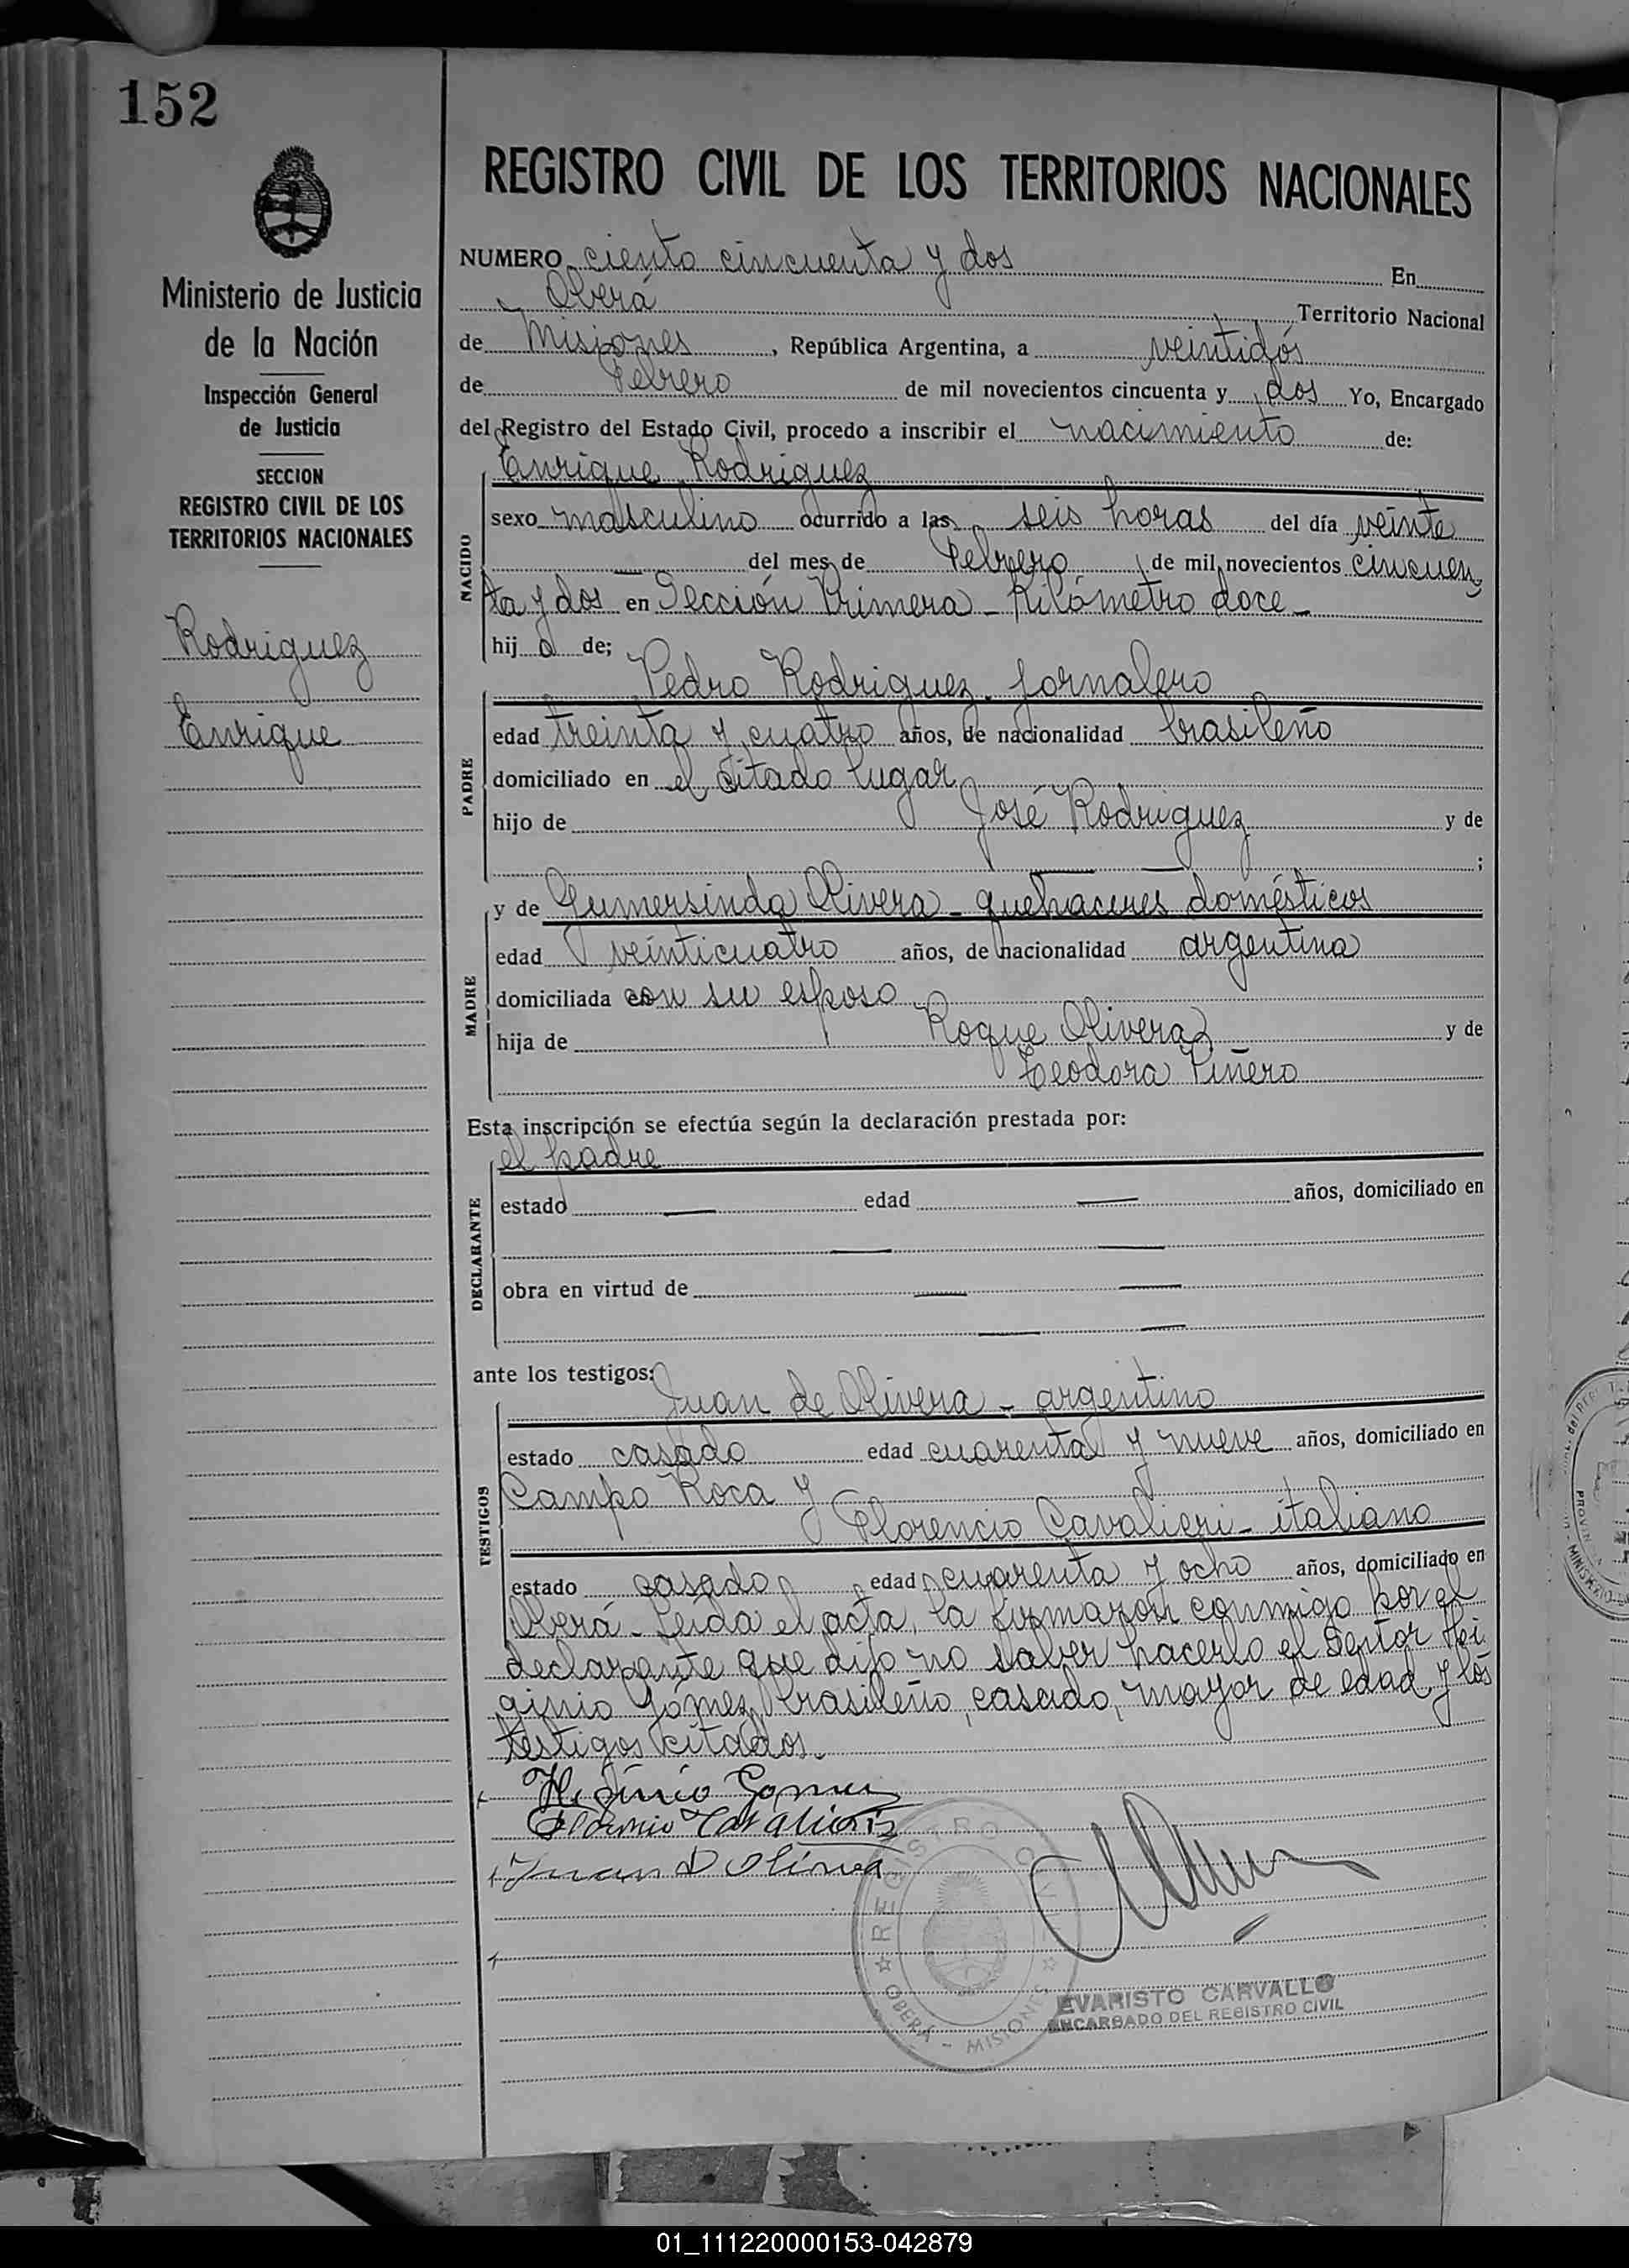 152
Ministerio de Justicia
de la Nación
Inspección General
de Justicia
SECCION
REGISTRO CIVIL DE LOS
TERRITORIOS NACIONALES
Rodriguez
Enrique
REGISTRO CIVIL DE LOS TERRITORIOS NACIONALES
NUMERO ciento cincuenta y dos En
Oberá Territorio Nacional
de Misiones, República Argentina, a veintidós
de Febrero de mil novecientos cincuenta y dos Yo, Encargado
del Registro del Estado Civil, procedo a inscribir el nacimiento de:
Enrique Rodriguez
NACIDO
sexo masculino ocurrido a las seis horas del día veinte
— del mes de Febrero de mil novecientos cincuen
ta y dos en Sección Primera - Kilómetro doce -
hij o de;
Pedro Rodriguez - jornalero
PADRE
edad treinta y cuatro años, de nacionalidad brasileño
domiciliado en el citado lugar
hijo de José Rodriguez y de
— — ;
y de Gumersinda Olivera - quehaceres domésticos
MADRE
edad veinticuatro años, de nacionalidad argentina
domiciliada con su esposo
hija de Roque Olivera y de
Teodora Piñero
Esta inscripción se efectúa según la declaración prestada por:
el padre
DECLARANTE
estado — edad — años, domiciliado en
— —
obra en virtud de — —
— —
ante los testigos:
Juan de Olivera - argentino
TESTIGOS
estado casado edad cuarenta y nueve años, domiciliado en
Campo Roca y
Florencio Cavalieri - italiano
estado casado edad cuarenta y ocho años, domiciliado en
Oberá - Leída el acta, la firmaron conmigo por el
declarante que dijo no saber hacerlo el Señor Hi
ginio Gómez, brasileño, casado, mayor de edad y los
testigos citados.
Higinio Gomez
Juan D Olivera
REGISTRO CIVIL
OBERÁ - MISIONES
EVARISTO CARVALLO
ENCARGADO DEL REGISTRO CIVIL
01_111220000153-042879